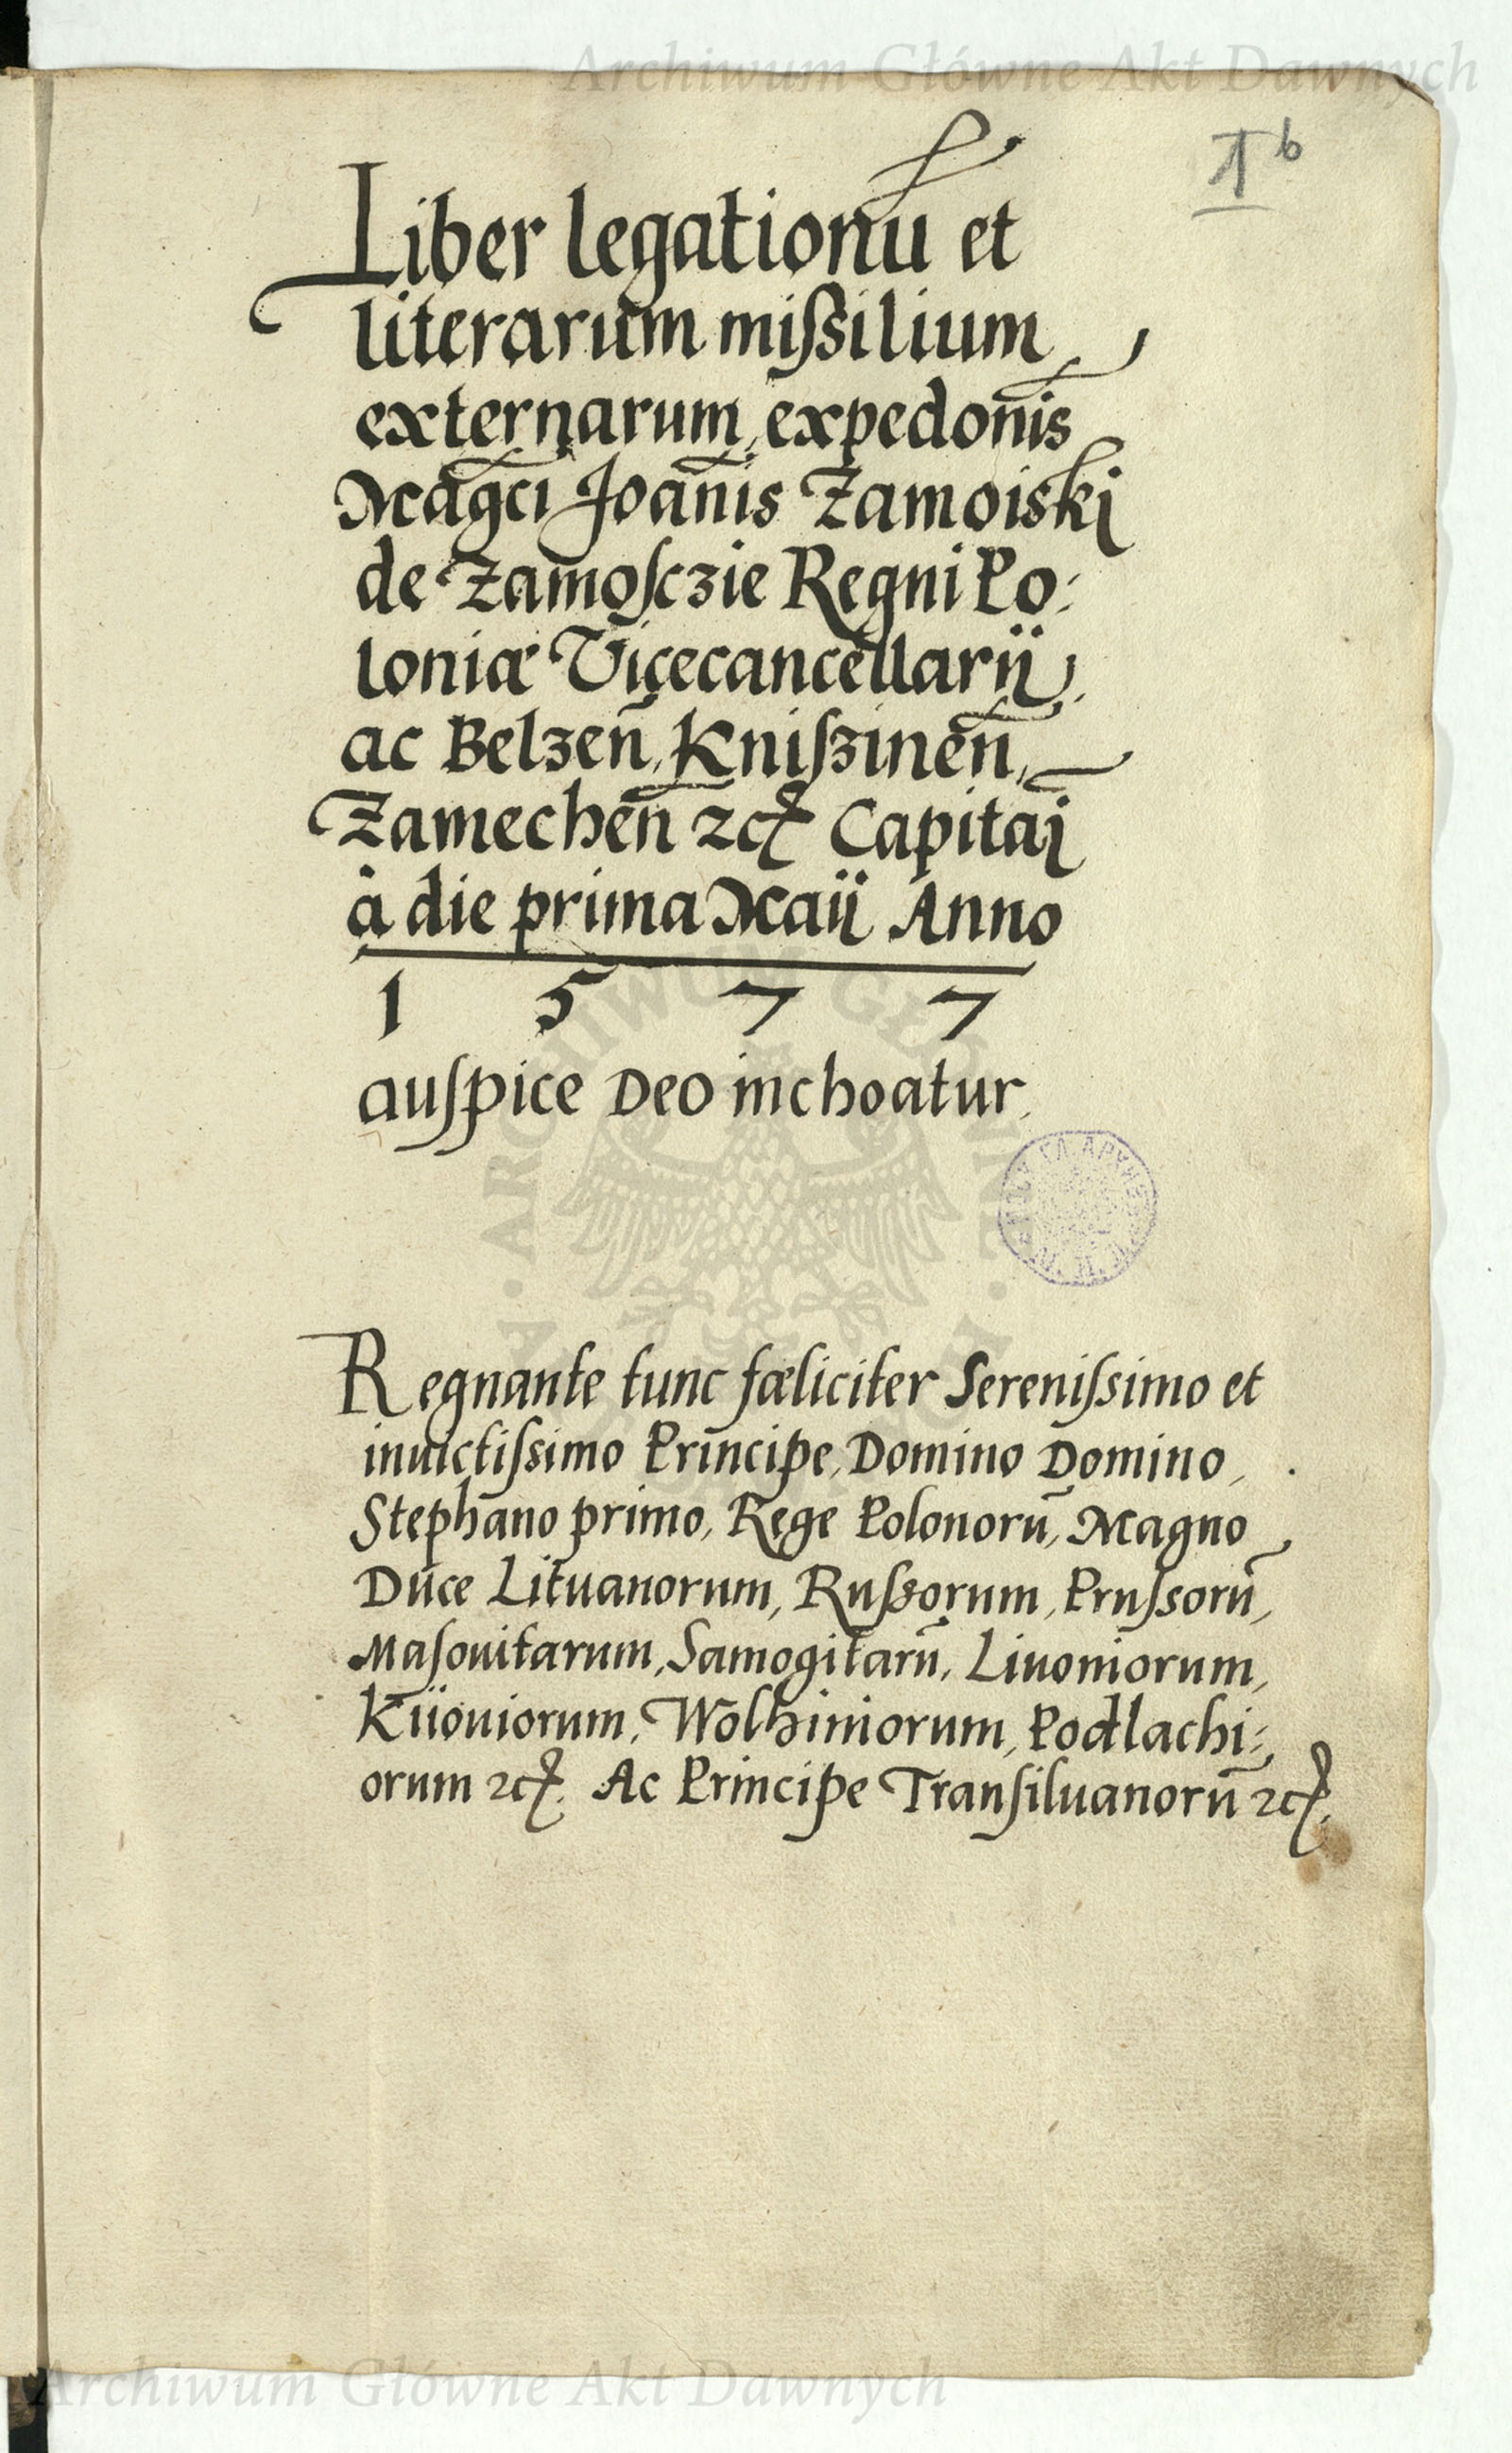 Archiwum Główne Akt Dawnych
1b
Liber legationū et
literarum mißilium
externarum, expedōnis
Magc̄i Joān̄is Zamoiski
de Zamoſczie Regni Po:
loniæ Vicecancellarij,
ac Belzen̄, Kniſzinen̄,
Zamechen̄ ꝛcꝭ Capitaj
à die prima Maij Anno
1 5 7 7
auſpice Deo inchoatur.
Regnante tunc fæliciter Sereniſsimo et
inuictiſsimo Principe, Domino Domino,
Stephano primo, Rege Polonorū, Magno
Duce Lituanorum, Rußorum, Pruſsorū,
Maſouitarum, Samogitarū, Liuoniorum,
Kijouiorum, Wolhiniorum, Podlachi:
orum ꝛcꝭ. Ac Principe Tranſiluanorū ꝛcꝭ.
Archiwum Główne Akt Dawnych